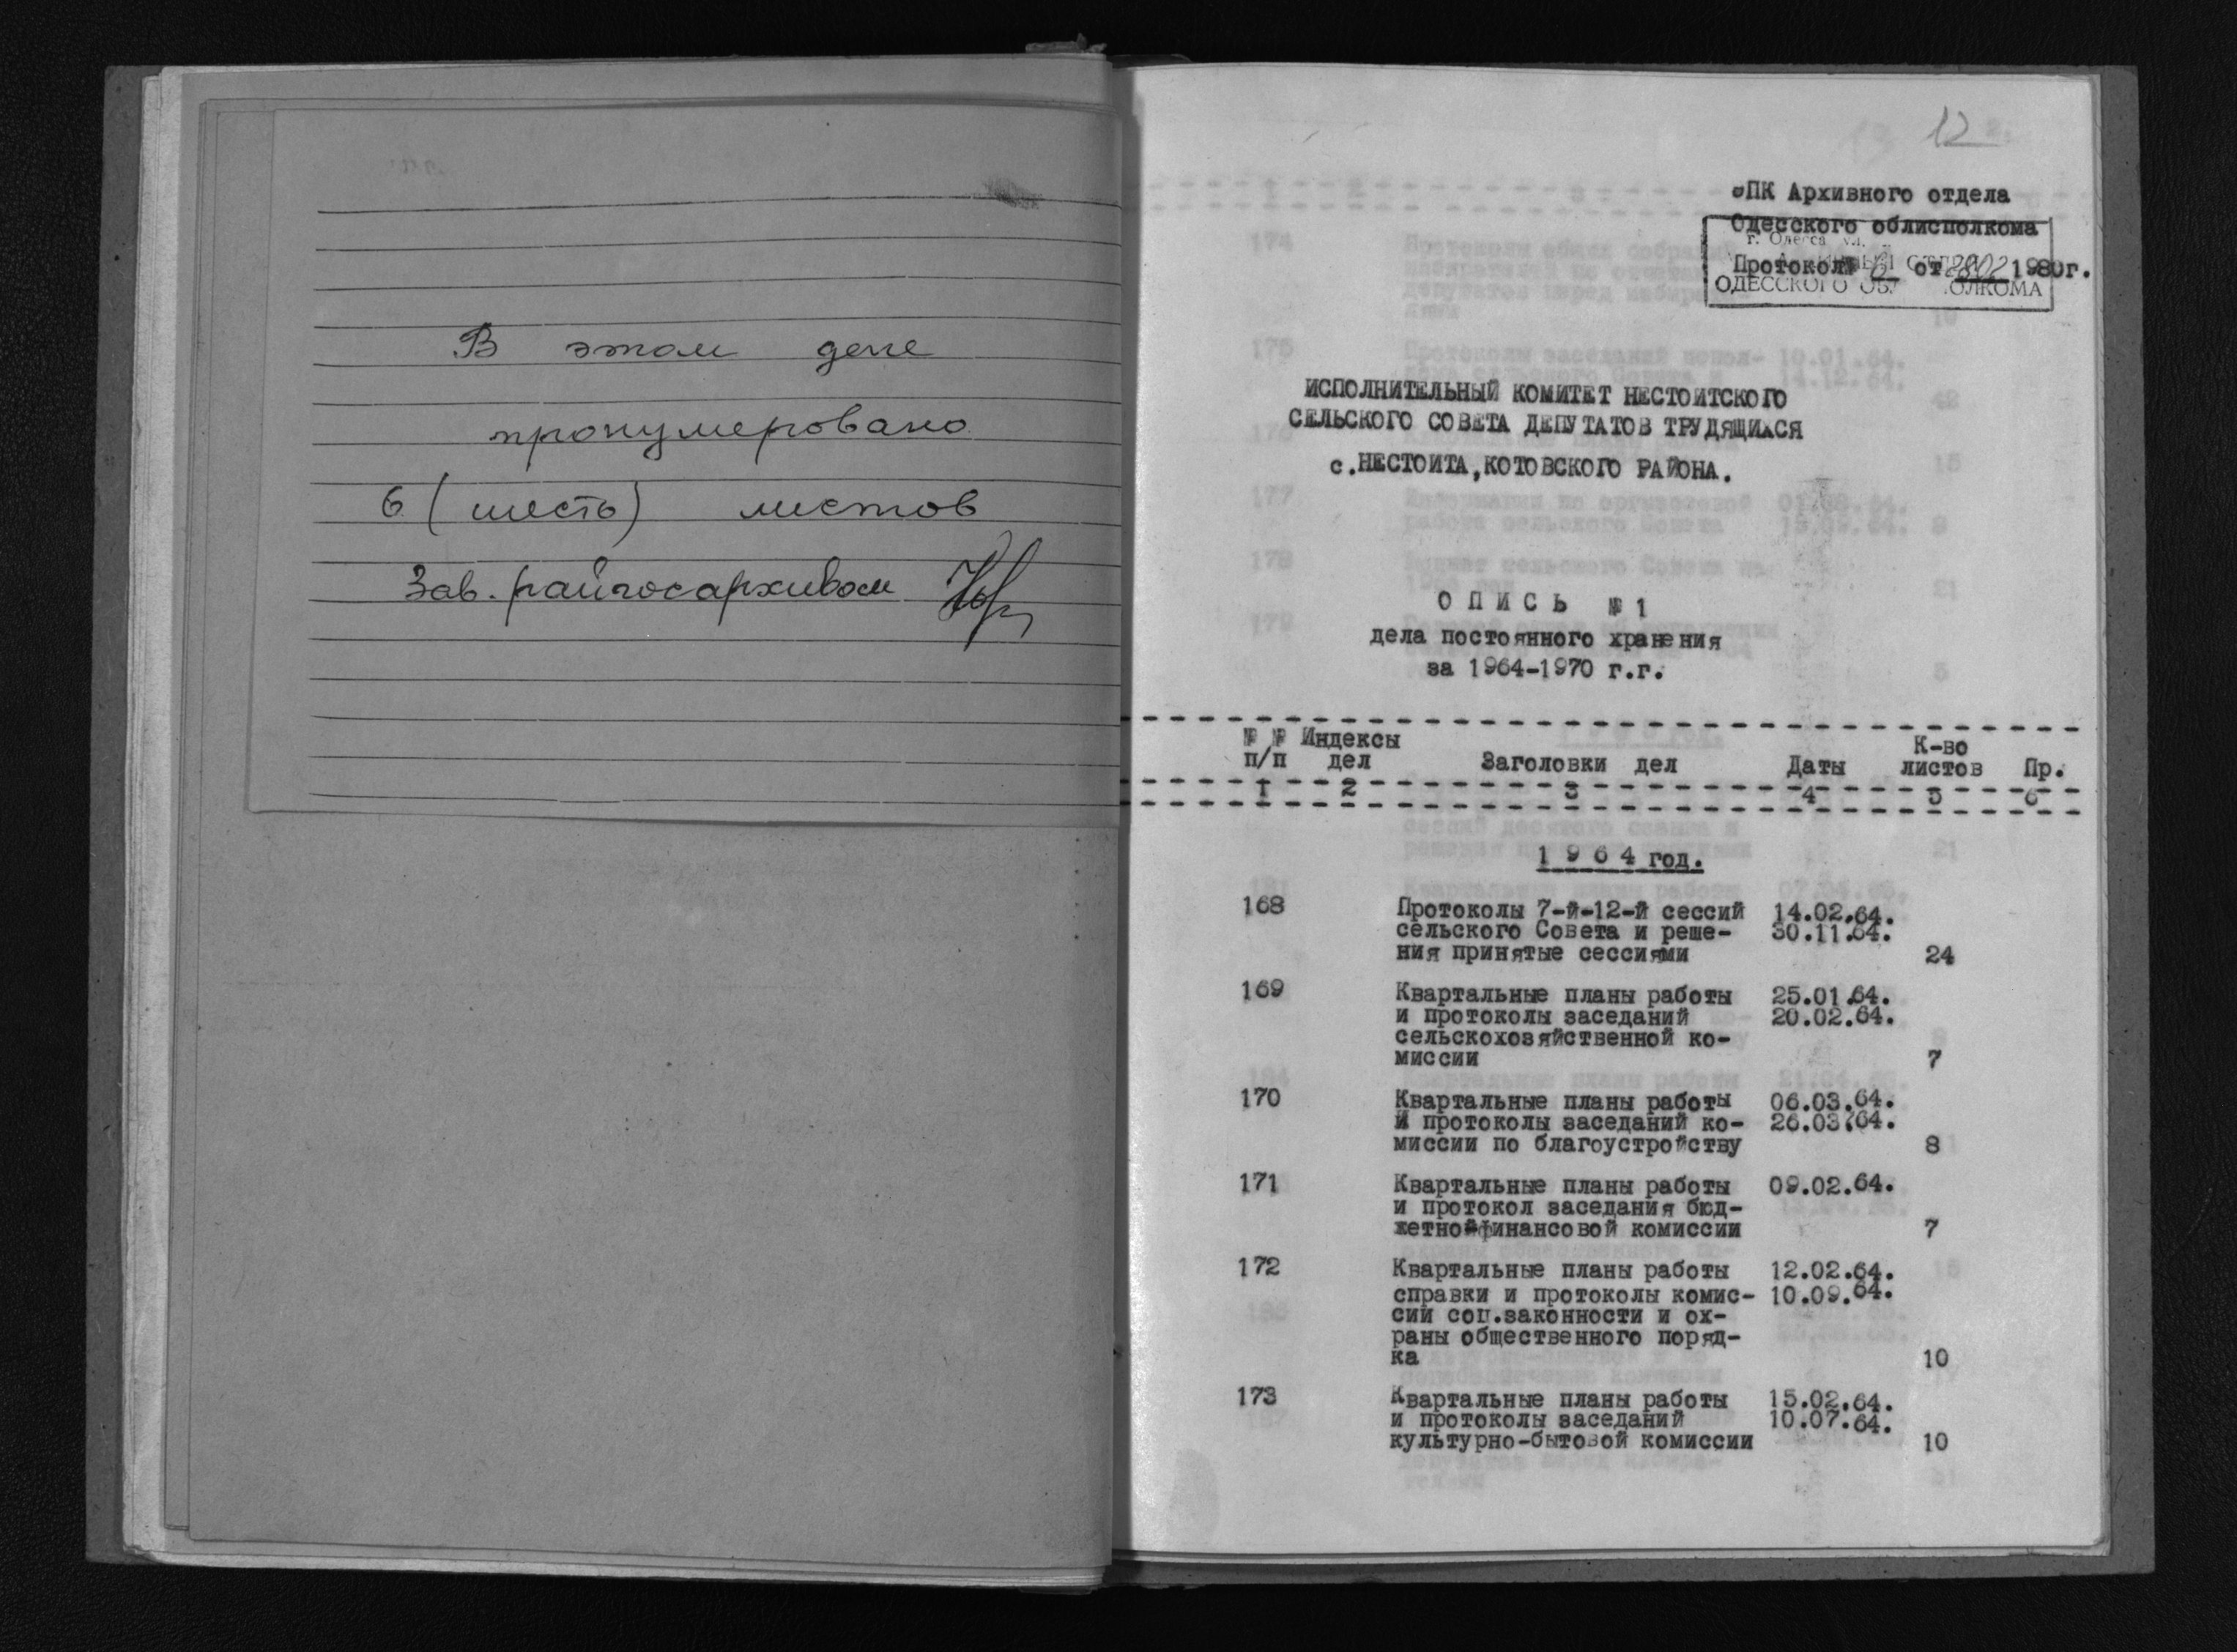 В этом деле
пронумеровано
6 (шесть) листов
Зав. райгосархивом
12
ЭПК Архивного отдела
Одесского облисполкома
г. Одесса ул.
Протокол № 6 от 28.02 1980г.
ОДЕССКОГО ОБЛ ОЛКОМА
ИСПОЛНИТЕЛЬНЫЙ КОМИТЕТ НЕСТОИТСКОГО
СЕЛЬСКОГО СОВЕТА ДЕПУТАТОВ ТРУДЯЩИХСЯ
с.НЕСТОИТА,КОТОВСКОГО РАЙОНА.
О П И С Ь № 1
дела постоянного хранения
за 1964-1970 г.г.
№ № Индексы К-во
п/п дел Заголовки дел Даты листов Пр.
1 2 3 4 5 6
1 9 6 4 год.
168 Протоколы 7-й-12-й сессий 14.02.64.
сельского Совета и реше- 30.11.64.
ния принятые сессиями 24
169 Квартальные планы работы 25.01.64.
и протоколы заседаний 20.02.64.
сельскохозяйственной ко-
миссии 7
170 Квартальные планы работы 06.03.64.
И протоколы заседаний ко- 26.03.64.
миссии по благоустройству 8
171 Квартальные планы работы 09.02.64.
и протокол заседания бюд-
жетнойфинансовой комиссии 7
172 Квартальные планы работы 12.02.64.
справки и протоколы комис- 10.09.64.
сий соц.законности и ох-
раны общественного поряд-
ка 10
173 Квартальные планы работы 15.02.64.
и протоколы заседаний 10.07.64.
культурно-бытовой комиссии 10